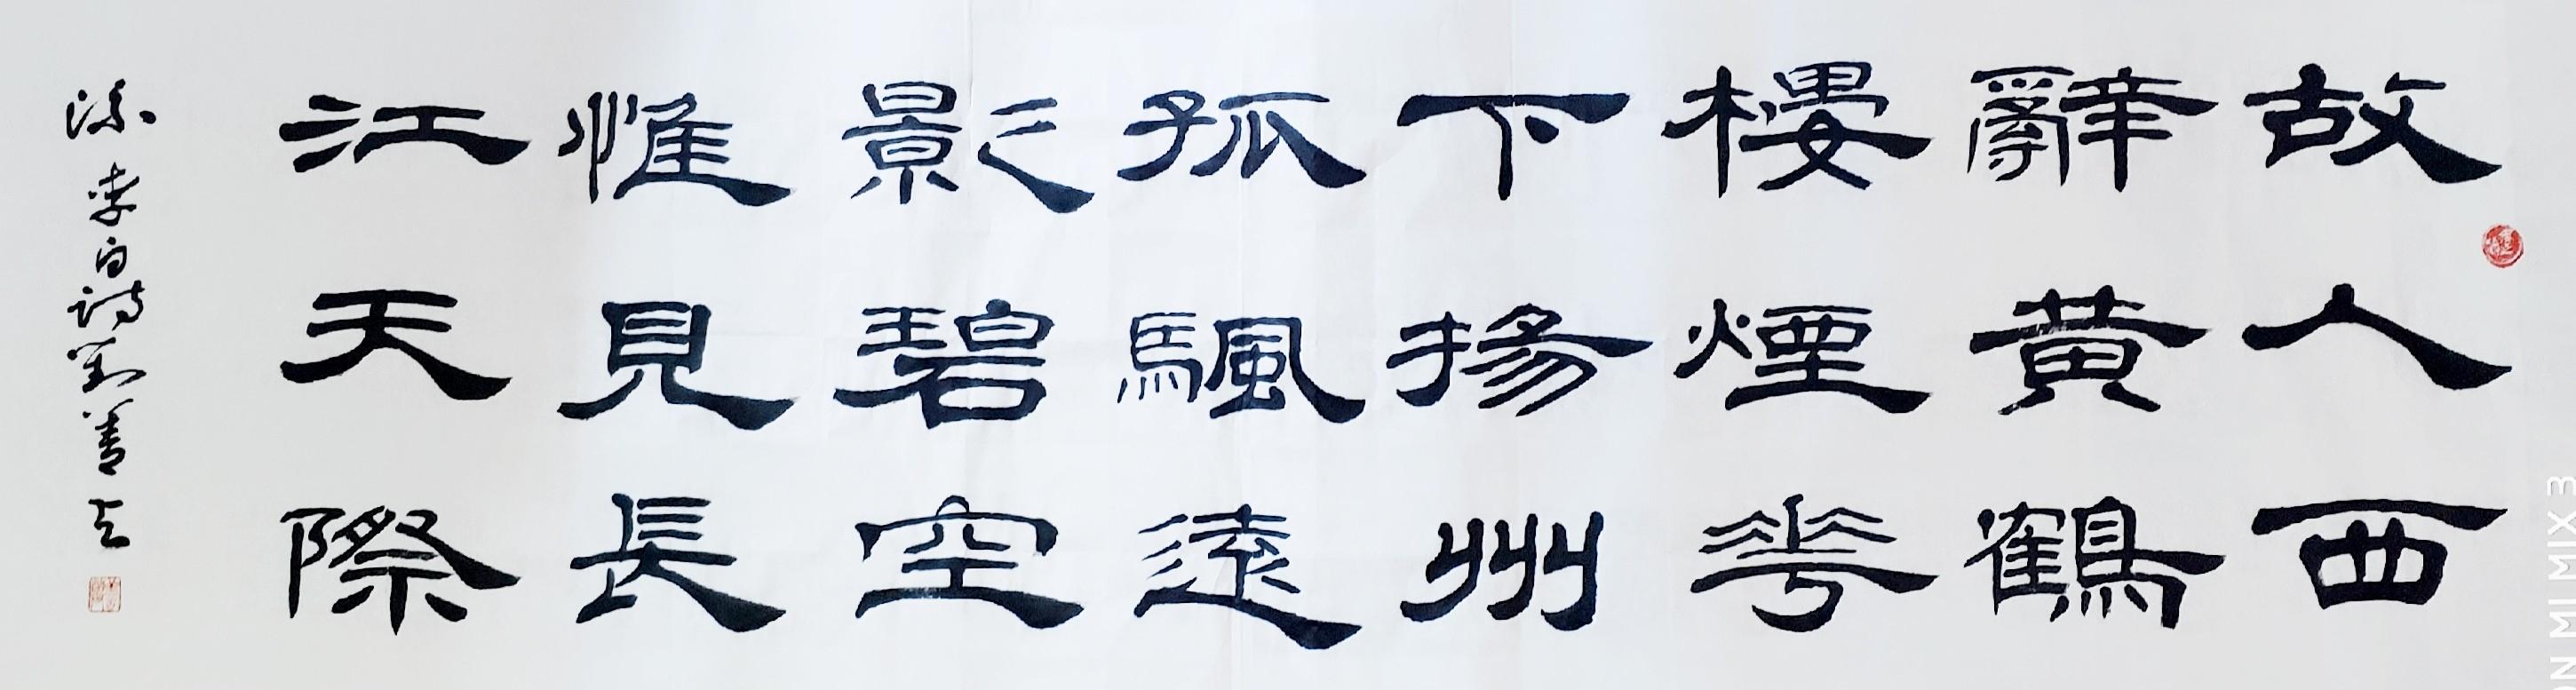 故人西
辭黄鶴
樓煙華
下揚州
孤颿遠
影碧空
惟見長
江天際
流 李白詩 劉善
N MI MIX 3